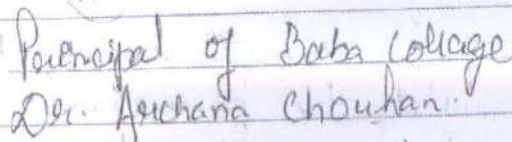 Principal of Baba Collage
Dr. Archana Chouhan.